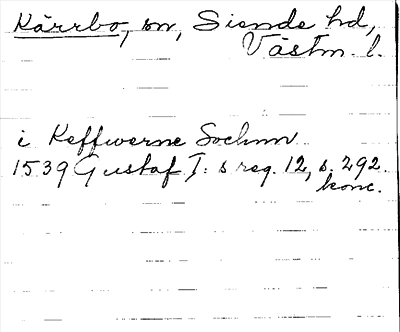 Kärrbo, sn, Siende hd,
Västm. l.
i Keffwerne Sochnn
1539 Gustaf I:s reg. 12, s. 292.
konc.